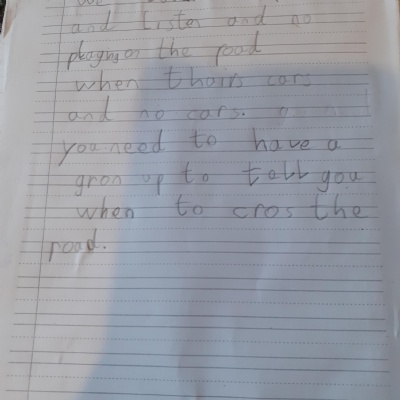 and listen and no
playing on the road
when thairs cars
and no cars.
you need to have a
gron up to tell you
when to cros the
road.